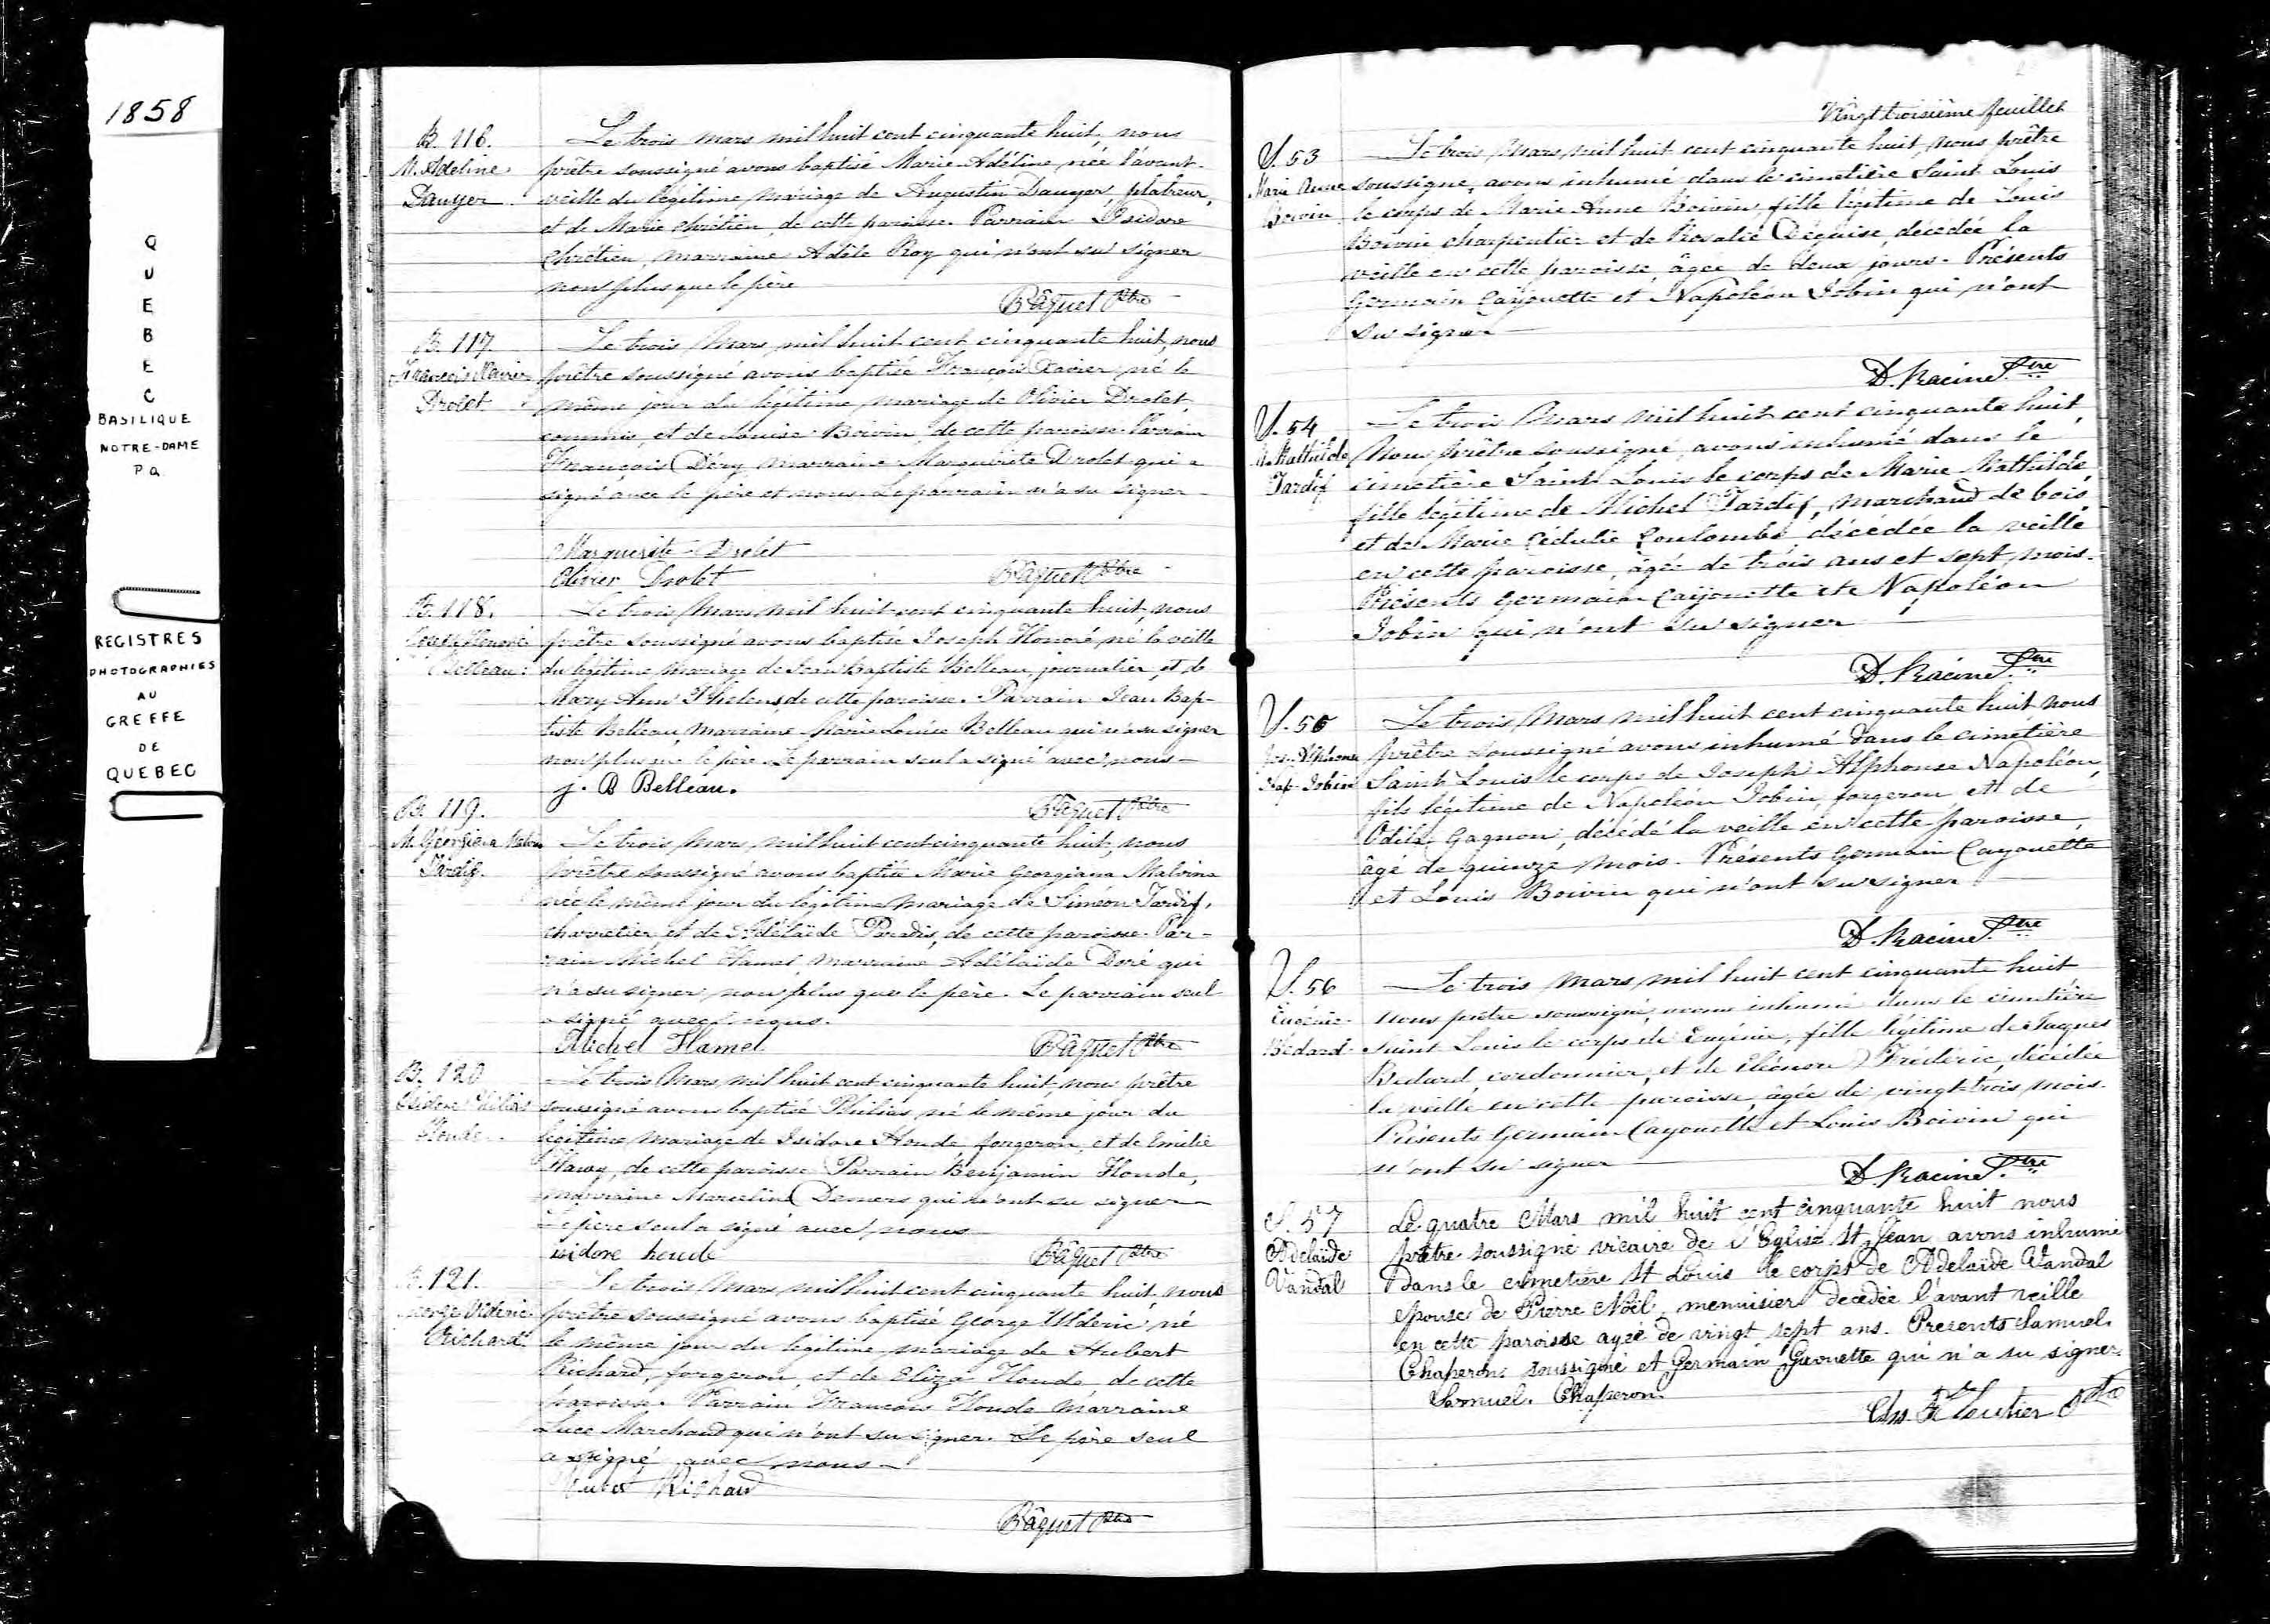 1858
Q
U
E
B
E
C
BASILIQUE
NOTRE-DAME
P.Q.
REGISTRES
PHOTOGRAPHIES
AU
GREFFE
DE
QUEBEC
B. 116.
M. Adeline
Dauyer
Le trois mars mil huit cent cinquante huit, nous
prêtre soussigné avons baptisé Marie Adéline née l'avant-
veille du légitime mariage de Augustin Dauyer, platreur,
et de Marie Chrétien, de cette paroisse. Parrain Isidore
Chrétien, marraine Adèle Roy qui n'ont su signer
non plus que le père
Bâquet Ptre
B. 117.
François Xavier
Drolet
Le trois Mars mil huit cent cinquante huit, nous
prêtre soussigné avons baptisé François Xavier né le
même jour du légitime mariage de Olivier Drolet,
commis, et de Louise Boivin, de cette paroisse. Parrain
François Déry marraine Marguerite Drolet qui a
signé avec le père et nous. Le parrain n'a su signer
Marguerite Drolet
Olivier Drolet
Bâquet Ptre
B. 118.
Joseph Honoré
Belleau
Le trois Mars mil huit cent cinquante huit, nous
prêtre soussigné avons baptisé Joseph Honoré né la veille
du légitime mariage de Jean Baptiste Belleau, journalier, et de
Mary Ann Phelens, de cette paroisse. Parrain Jean Bap-
tiste Belleau, marraine Marie Louise Belleau qui n'a su signer
non plus que le père. Le parrain seul a signé avec nous
J. B Belleau.
Bâquet Ptre
B. 119.
M. Géorgiana Malvina
Tardif.
Le trois Mars mil huit cent cinquante huit, nous
prêtre soussigné avons baptisé Marie Georgiana Malvina
née le même jour du légitime mariage de Siméon Tardif,
charretier, et de Adélaïde Paradis, de cette paroisse. Par-
rain Michel Hamel, marraine Adélaïde Doré qui
n'a su signer non plus que le père. Le parrain seul
a signé avec nous.
Michel Hamel
Bâquet Ptre
B. 120
Philias
Houde
Le trois Mars mil huit cent cinquante huit, nous prêtre
soussigné avons baptisé Philias né le même jour du
légitime mariage de Isidore Houde, forgeron, et de Emilie
de cette paroisse. Parrain Benjamin Houde,
marraine Marceline Demers qui n'ont su signer
Le père seul a signé avec nous
isidore houde
Bâquet Ptre
B. 121.
George Ulderic
Richard
Le trois Mars mil huit cent cinquante huit, nous
prêtre soussigné avons baptisé George Ulderic né
le même jour du légitime mariage de Hubert
Richard, forgeron, et de Eliza Houde, de cette
paroisse. Parrain François Houde marraine
Luce Marchand qui n'ont su signer. Le père seul
a signé avec nous
Hubert Richard
Bâquet Ptre
Vingt troisième feuillet
S. 53
Marie Anne
Boivin
Le trois Mars mil huit cent cinquante huit, nous prêtre
soussigné, avons inhumé dans le cimetière Saint Louis
le corps de Marie Anne Boivin, fille légitime de Louis
Boivin charpentier et de Rosalie Déguise, décédée la
veille en cette paroisse, âgée de deux jours. Présents
Germain Cayouette et Napoléon Jobin qui n'ont
su signer
D. Racine Ptre
S. 54
M. Mathilde
Tardif
Le trois Mars mil huit cent cinquante huit,
Nous prêtre soussigné, avons inhumé dans le
cimetière Saint Louis le corps de Marie Mathilde
fille légitime de Michel Tardif, marchand de bois,
et de Marie Cédulie Coulombe décédée la veille
en cette paroisse, âgée de trois ans et sept mois.
Présents Germain Cayouette et Napoléon
Jobin qui n'ont su signer
D. Racine Ptre
S. 55
Jos. Alphonse
Nap. Jobin
Le trois Mars mil huit cent cinquante huit nous
prêtre soussigné avons inhumé dans le cimetière
Saint Louis le corps de Joseph Alphonse Napoléon,
fils légitime de Napoléon Jobin, forgeron, et de
Odile Gagnon, décédé la veille en cette paroisse,
âgé de quinze mois. Présents Germain Cayouette
et Louis Boivin qui n'ont su signer
D. Racine Ptre
S. 56
Eugénie
Bédard
Le trois Mars mil huit cent cinquante huit
nous prêtre soussigné, avons inhumé dans le cimetière
Saint Louis le corps de Eugénie, fille légitime de Jaques
Bedard, cordonnier, et de Eléonore Frédéric, décédée
la veille en cette paroisse, âgée de vingt-trois mois.
Présents Germain Cayouette et Louis Boivin qui
n'ont su signer
D. Racine Ptre
S. 57
Adelaïde
Vandal
Le quatre Mars mil huit cent cinquante huit nous
prêtre soussigné vicaire de l'Eglise St Jean avons inhumé
dans le cimetière St Louis le corps de Adelaïde Vandal
épouse de Pierre Noël, menuisier décédée l'avant veille
en cette paroisse agée de vingt sept ans. Presents Samuel
Chaperon soussigné et Germain qui n'a su signer.
Samuel Chaperon
Ptre